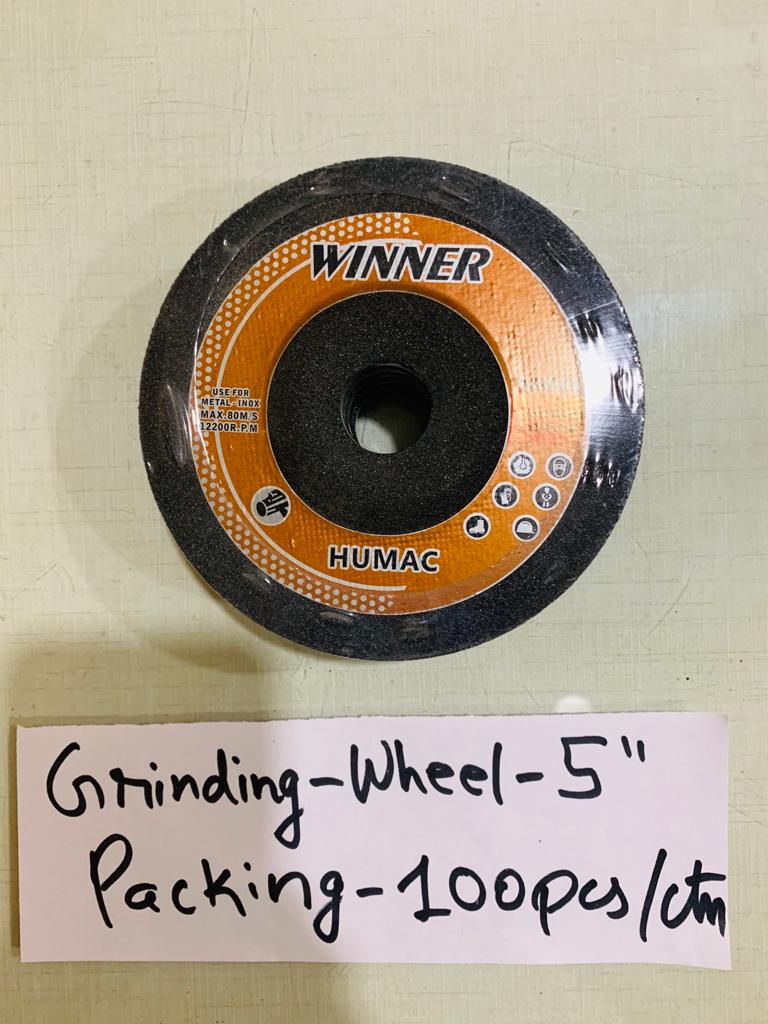 WINNER
USE FOR
METAL-INOX
MAX.80M/S
12200R.P.M
HUMAC
Grinding-Wheel-5"
Packing-100pcs/ctn